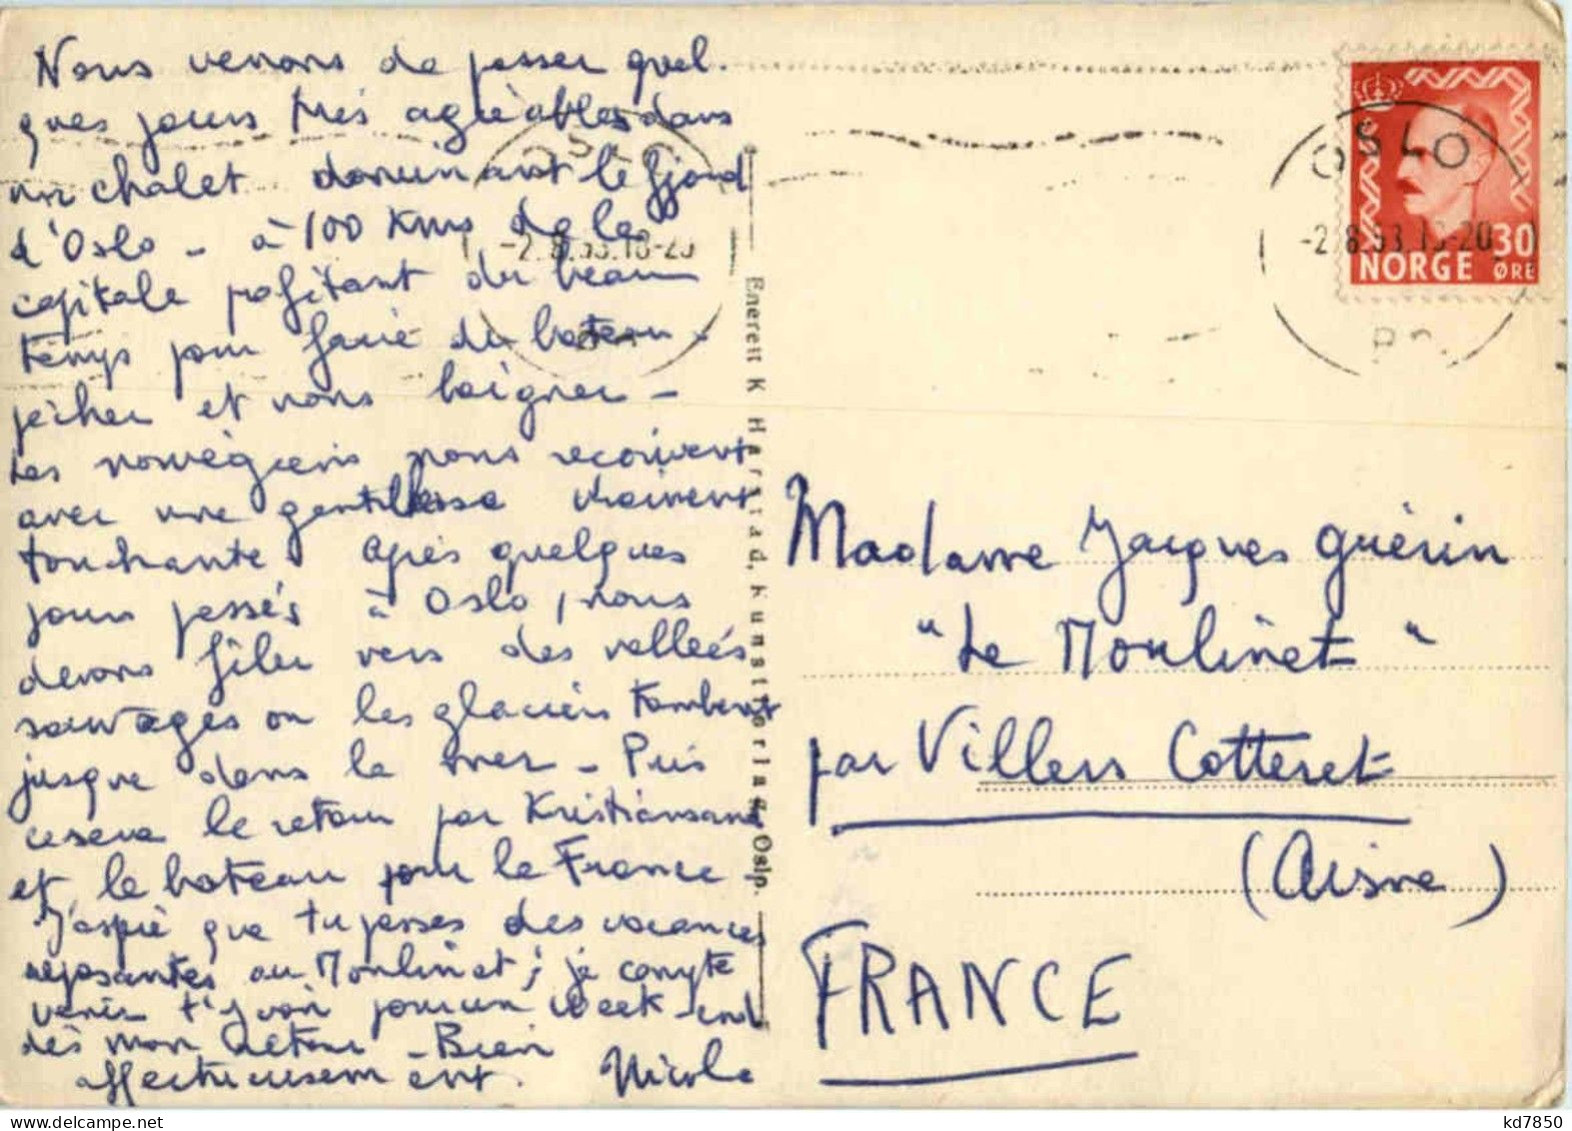 Nous venons de passer quel-
ques jours très agréables dans
un chalet dominant le fjord
d'Oslo - à 100 Kms de la
capitale profitant du beau
temps pour faire du bateau -
pêcher et nous baigner -
Les norvégiens nous reçoivent
avec une gentillesse vraiment
touchante. Après quelques
jours passés à Oslo, nous
devons filer vers des vallées
sauvages où les glaciers tombent
jusque dans la mer - Puis
ce sera le retour par Kristiansand
et le bateau pour la France
J'espère que tu passes des vacances
reposantes au Moulinet; je compte
venir t'y voir pour un week-end
dès mon retour - Bien
affectueusement. Nicole
OSLO
-2.8.53.18-20
Enerett K. Harstad, Kunstforlag, Oslo.
OSLO
-2.8.53.18-20
30
NORGE ØRE
Madame Jacques Guérin
"Le Moulinet"
par Villers Cotteret
(Aisne)
FRANCE
kd7850